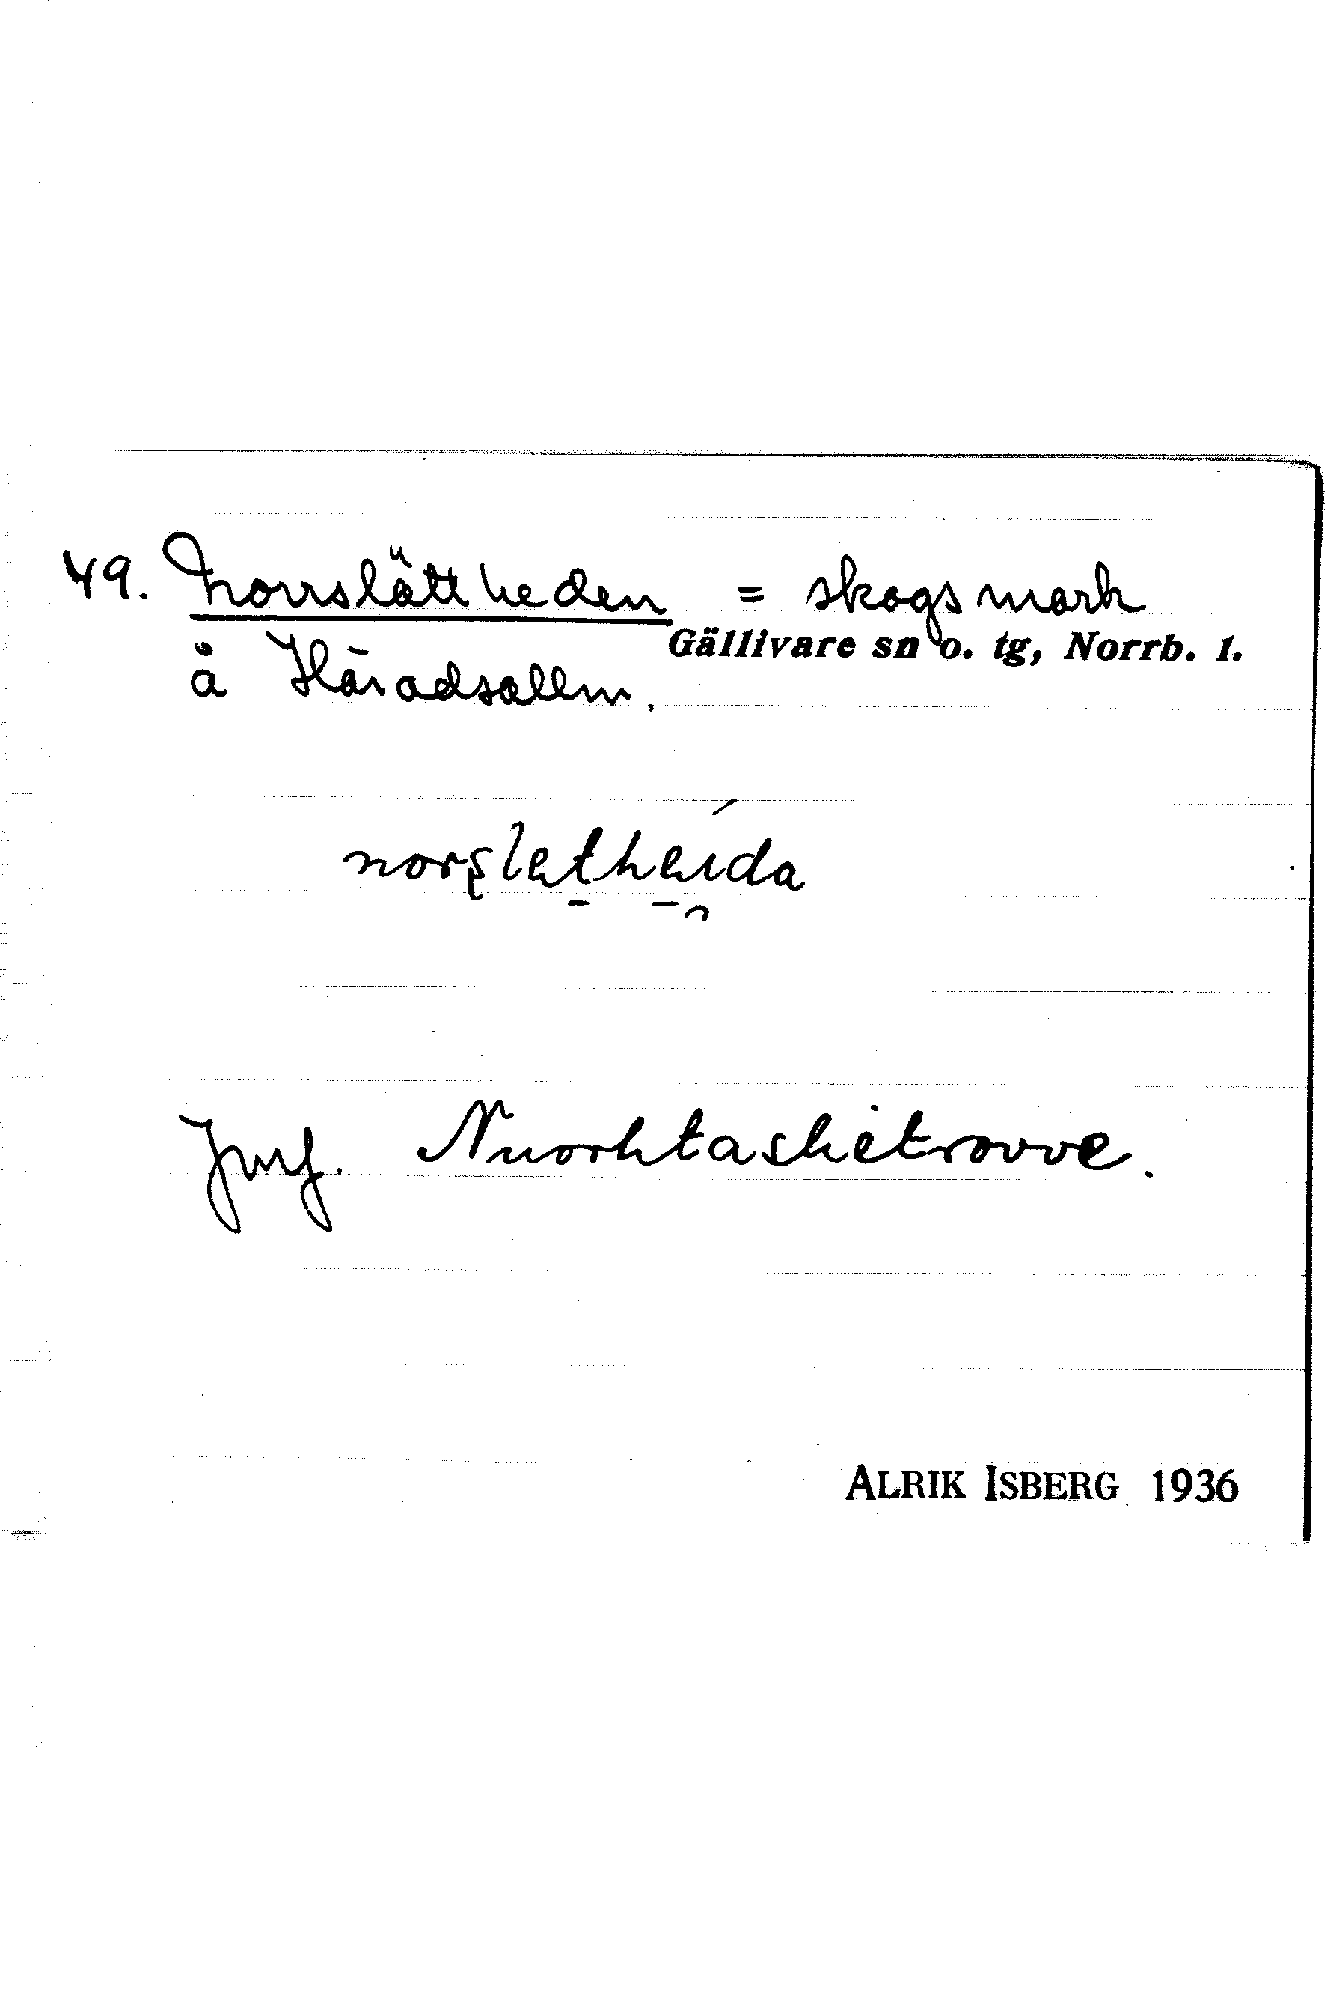 49. Norrslättheden = skogsmark
Gällivare sn o. tg, Norrb. l.
å Häradsallm.
norsletheida
Jmf. Nuorhtaskietrovve.
ALRIK ISBERG 1936